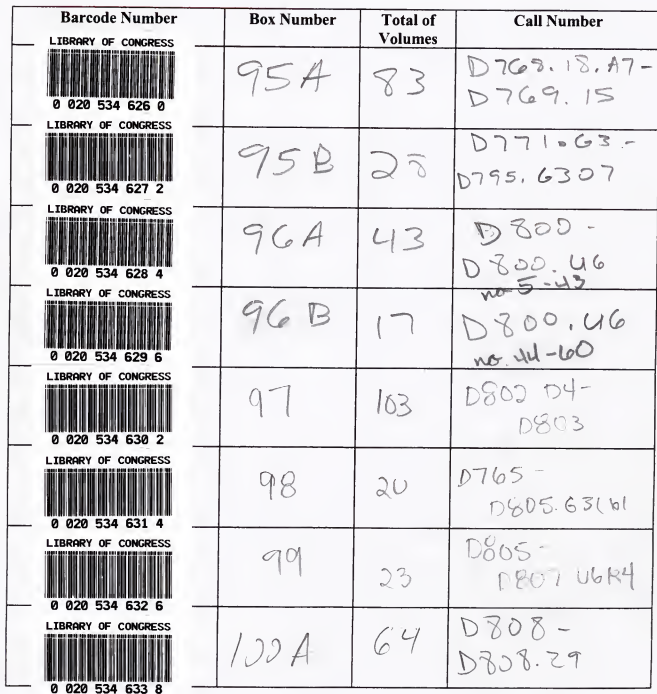 Barcode Number Box Number Total of Volumes Call Number
LIBRARY OF CONGRESS
0 020 534 626 0
95A 83 D769.18.A7-
D769.15
LIBRARY OF CONGRESS
0 020 534 627 2
95B 28 D771.G3-
D795.G307
LIBRARY OF CONGRESS
0 020 534 628 4
96A 43 D800-
D800.U6
no 5-43
LIBRARY OF CONGRESS
0 020 534 629 6
96B 17 D800.U6
no. 44-60
LIBRARY OF CONGRESS
0 020 534 630 2
97 103 D802 D4-
D803
LIBRARY OF CONGRESS
0 020 534 631 4
98 20 D765-
LIBRARY OF CONGRESS
0 020 534 632 6
99 23 D805-
D807 U6R4
LIBRARY OF CONGRESS
0 020 534 633 8
100A 64 D808-
D808.29